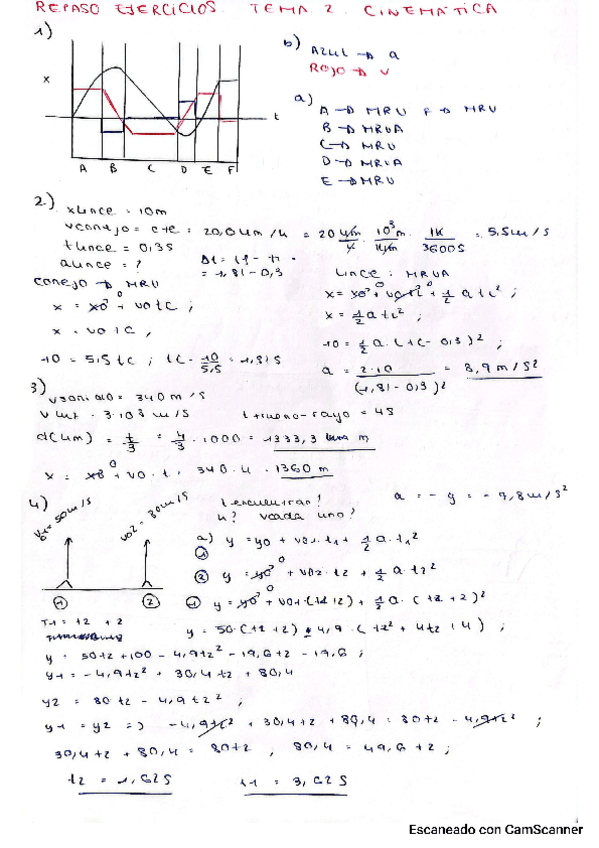 REPASO EJERCICIOS. TEMA 2. CINEMÁTICA
1)
x
t
A B C D E F
b) Azul → a
Rojo → v
a)
A → MRU F → MRU
B → MRUA
C → MRU
D → MRUA
E → MRU
2)
xlince = 10m
vconejo = cte = 20,0 km/h = 20 km/h · 10³m/1km · 1h/3600s = 5,5m/s
tlince = 0,3s
alince = ?
Δt = tf - ti
= 1,81 - 0,3
conejo → MRU
lince: MRUA
x = x0⁰ + v0tc ;
x = x0⁰ + v0tl⁰ + 1/2 a tl² ;
x = v0tc ;
x = 1/2 a tl² ;
10 = 5,5 tc ; tc = 10/5,5 = 1,81s
10 = 1/2 a · (tc - 0,3)² ;
a = 2·10/(1,81 - 0,3)² = 8,9 m/s²
3)
vsonido = 340 m/s
v luz = 3·10⁸ m/s
t trueno-rayo = 4s
d(km) = t/3 = 4/3 · 1000 = 1333,3 m
x = x0⁰ + v0 · t = 340 · 4 = 1360 m
4)
v01 = 50m/s
v02 = 80m/s
1 2
t encuentran?
h? vcada uno?
a = -g = -9,8m/s²
a) y = y0 + v01·t1 + 1/2 a·t1²
1
2 y = y0⁰ + v02·t2 + 1/2 a·t2²
1 y = y0⁰ + v01·(t2+2) + 1/2 a·(t2+2)²
T1 = t2 + 2
y = 50·(t2+2) - 4,9·(t2² + 4t2 + 4) ;
y = 50t2 + 100 - 4,9t2² - 19,6t2 - 19,6 ;
y1 = -4,9t2² + 30,4t2 + 80,4
y2 = 80t2 - 4,9t2² ;
y1 = y2 => -4,9t2² + 30,4t2 + 80,4 = 80t2 - 4,9t2² ;
30,4t2 + 80,4 = 80t2 ; 80,4 = 49,6t2 ;
t2 = 1,62s t1 = 3,62s
Escaneado con CamScanner